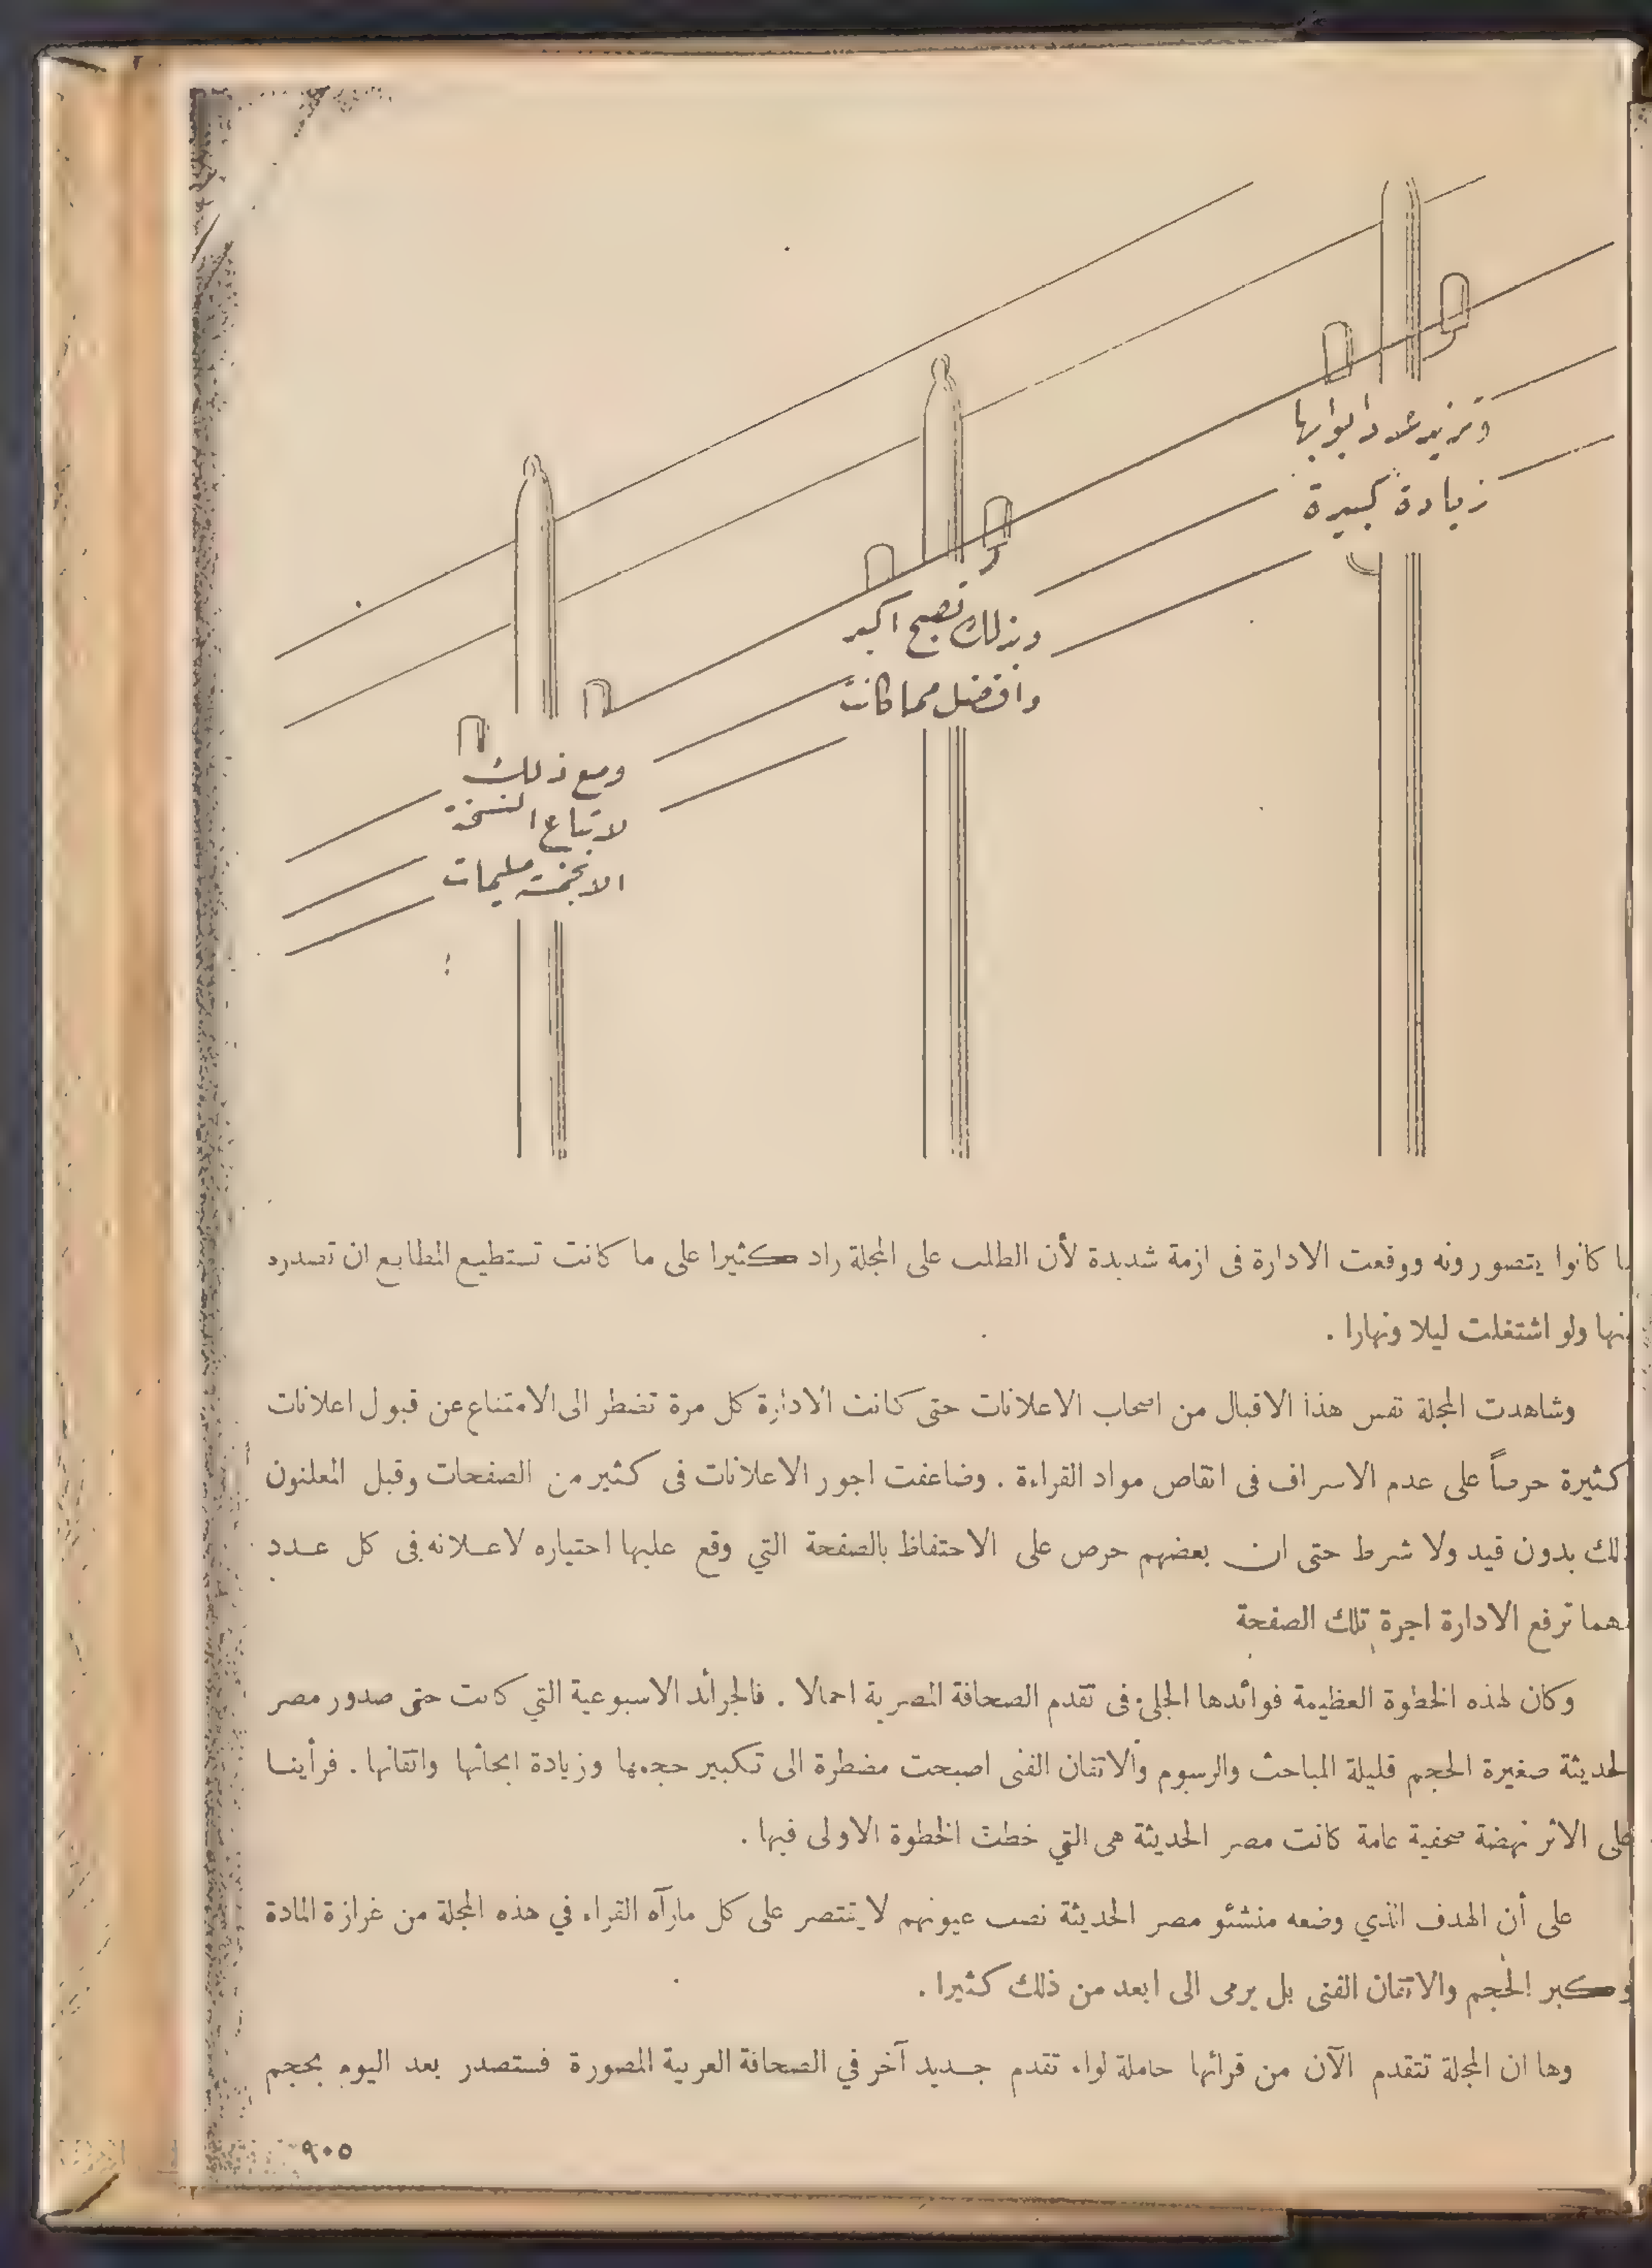 وتزيد عدد ابوابها
زيادة كبيرة
وبذلك تصبح اكبر
وافضل مما كانت
ومع ذلك
لا تباع النسخة
الا بخمسة مليمات
ما كانوا يتصورونه ووقعت الادارة فى ازمة شديدة لأن الطلب على المجلة زاد كثيرا على ما كانت تستطيع المطابع ان تصدره
منها ولو اشتغلت ليلا ونهارا .
وشاهدت المجلة نفس هذا الاقبال من اصحاب الاعلانات حتى كانت الادارة كل مرة تضطر الى الامتناع عن قبول اعلانات
كثيرة حرصاً على عدم الاسراف فى انقاص مواد القراءة . وضاعفت اجور الاعلانات فى كثير من الصفحات وقبل المعلنون
ذلك بدون قيد ولا شرط حتى ان بعضهم حرص على الاحتفاظ بالصفحة التي وقع عليها اختياره لاعلانه فى كل عدد
مهما ترفع الادارة اجرة تلك الصفحة
وكان لهذه الخطوة العظيمة فوائدها الجلى فى تقدم الصحافة المصرية اجمالا . فالجرائد الاسبوعية التي كانت حتى صدور مصر
الحديثة صغيرة الحجم قليلة المباحث والرسوم والاتقان الفنى اصبحت مضطرة الى تكبير حجمها وزيادة ابحاثها واتقانها . فرأينا
على الاثر نهضة صحفية عامة كانت مصر الحديثة هى التي خطت الخطوة الاولى فيها .
على أن الهدف الذي وضعه منشئو مصر الحديثة نصب عيونهم لا يقتصر على كل مارآه القراء في هذه المجلة من غزازة المادة
وكبر الحجم والاتقان الفنى بل يرمى الى ابعد من ذلك كثيرا .
وها ان المجلة تتقدم الآن من قرائها حاملة لواء تقدم جديد آخر في الصحافة العربية المصورة فستصدر بعد اليوم بحجم
٩٠٥